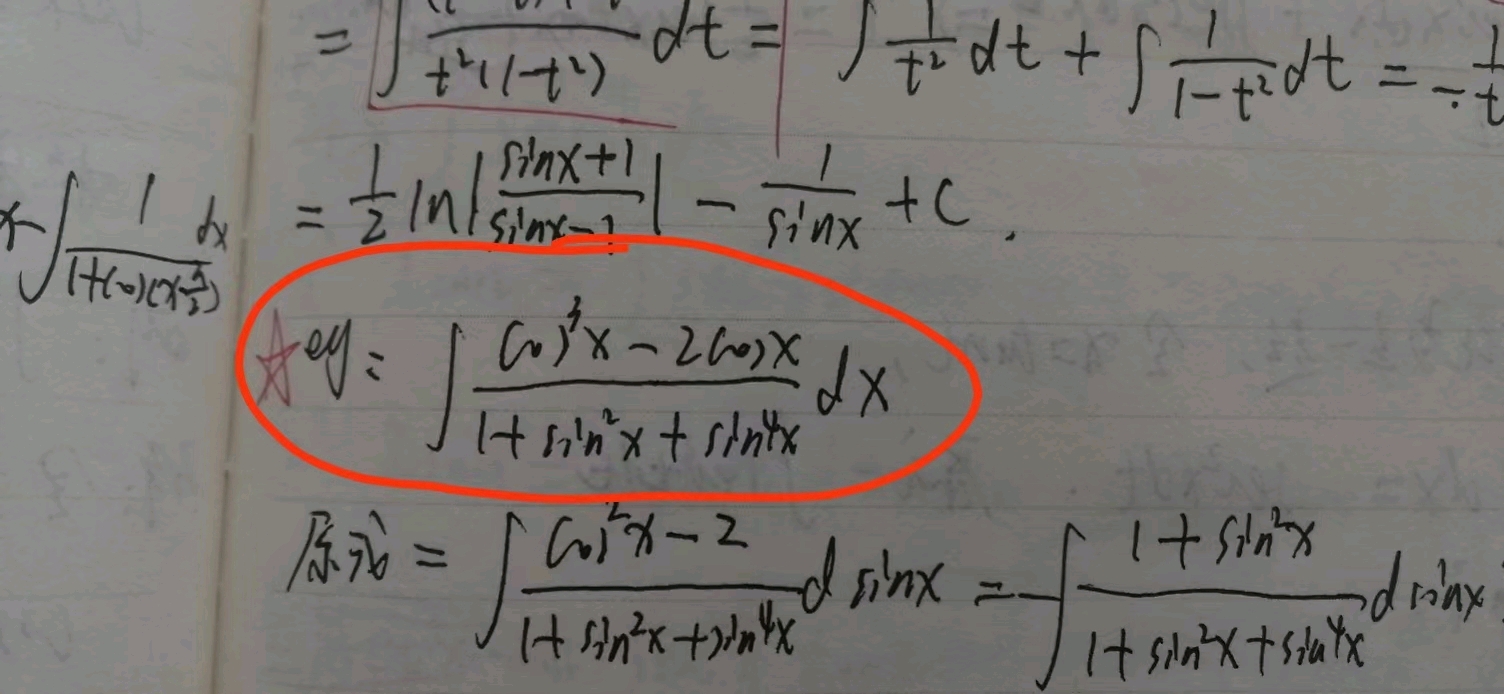 = ∫ 1/(t²(1-t²)) dt = ∫ 1/t² dt + ∫ 1/(1-t²) dt = - 1/t
= 1/2 ln|(sinx+1)/(sinx-1)| - 1/sinx + C.
∫ 1/(1+cos(x-π/2)) dx
☆eg: ∫ (cos³x - 2cosx)/(1+sin²x+sin⁴x) dx
原式 = ∫ (cos²x - 2)/(1+sin²x+sin⁴x) d sinx = -∫ (1+sin²x)/(1+sin²x+sin⁴x) d sinx